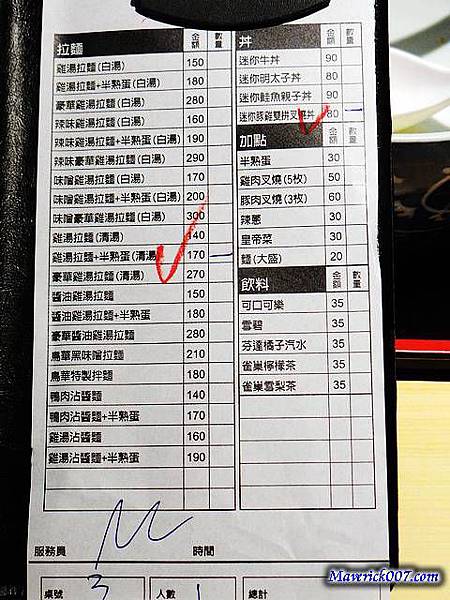 拉麵 金額 數量
雞湯拉麵(白湯) 150
雞湯拉麵+半熟蛋(白湯) 180
豪華雞湯拉麵(白湯) 280
辣味雞湯拉麵(白湯) 160
辣味雞湯拉麵+半熟蛋(白湯) 190
辣味豪華雞湯拉麵(白湯) 290
味噌雞湯拉麵(白湯) 170
味噌雞湯拉麵+半熟蛋(白湯) 200
味噌豪華雞湯拉麵(白湯) 300
雞湯拉麵(清湯) 140
雞湯拉麵+半熟蛋(清湯) 170 一
豪華雞湯拉麵(清湯) 270
醬油雞湯拉麵 150
醬油雞湯拉麵+半熟蛋 180
豪華醬油雞湯拉麵 280
鳥華黑味噌拉麵 210
鳥華特製拌麵 180
鴨肉沾醬麵 140
鴨肉沾醬麵+半熟蛋 170
雞湯沾醬麵 160
雞湯沾醬麵+半熟蛋 190
丼 金額 數量
迷你牛丼 90
迷你明太子丼 80
迷你鮭魚親子丼 90
迷你豚雞雙拼叉燒丼 80 一
加點 金額 數量
半熟蛋 30
雞肉叉燒(5枚) 50
豚肉叉燒(3枚) 60
辣蔥 30
皇帝菜 30
麵(大盛) 20
飲料 金額 數量
可口可樂 35
雪碧 35
芬達橘子汽水 35
雀巢檸檬茶 35
雀巢雪梨茶 35
服務員 時間
桌號 3 人數 1 總計
Maverick007.com